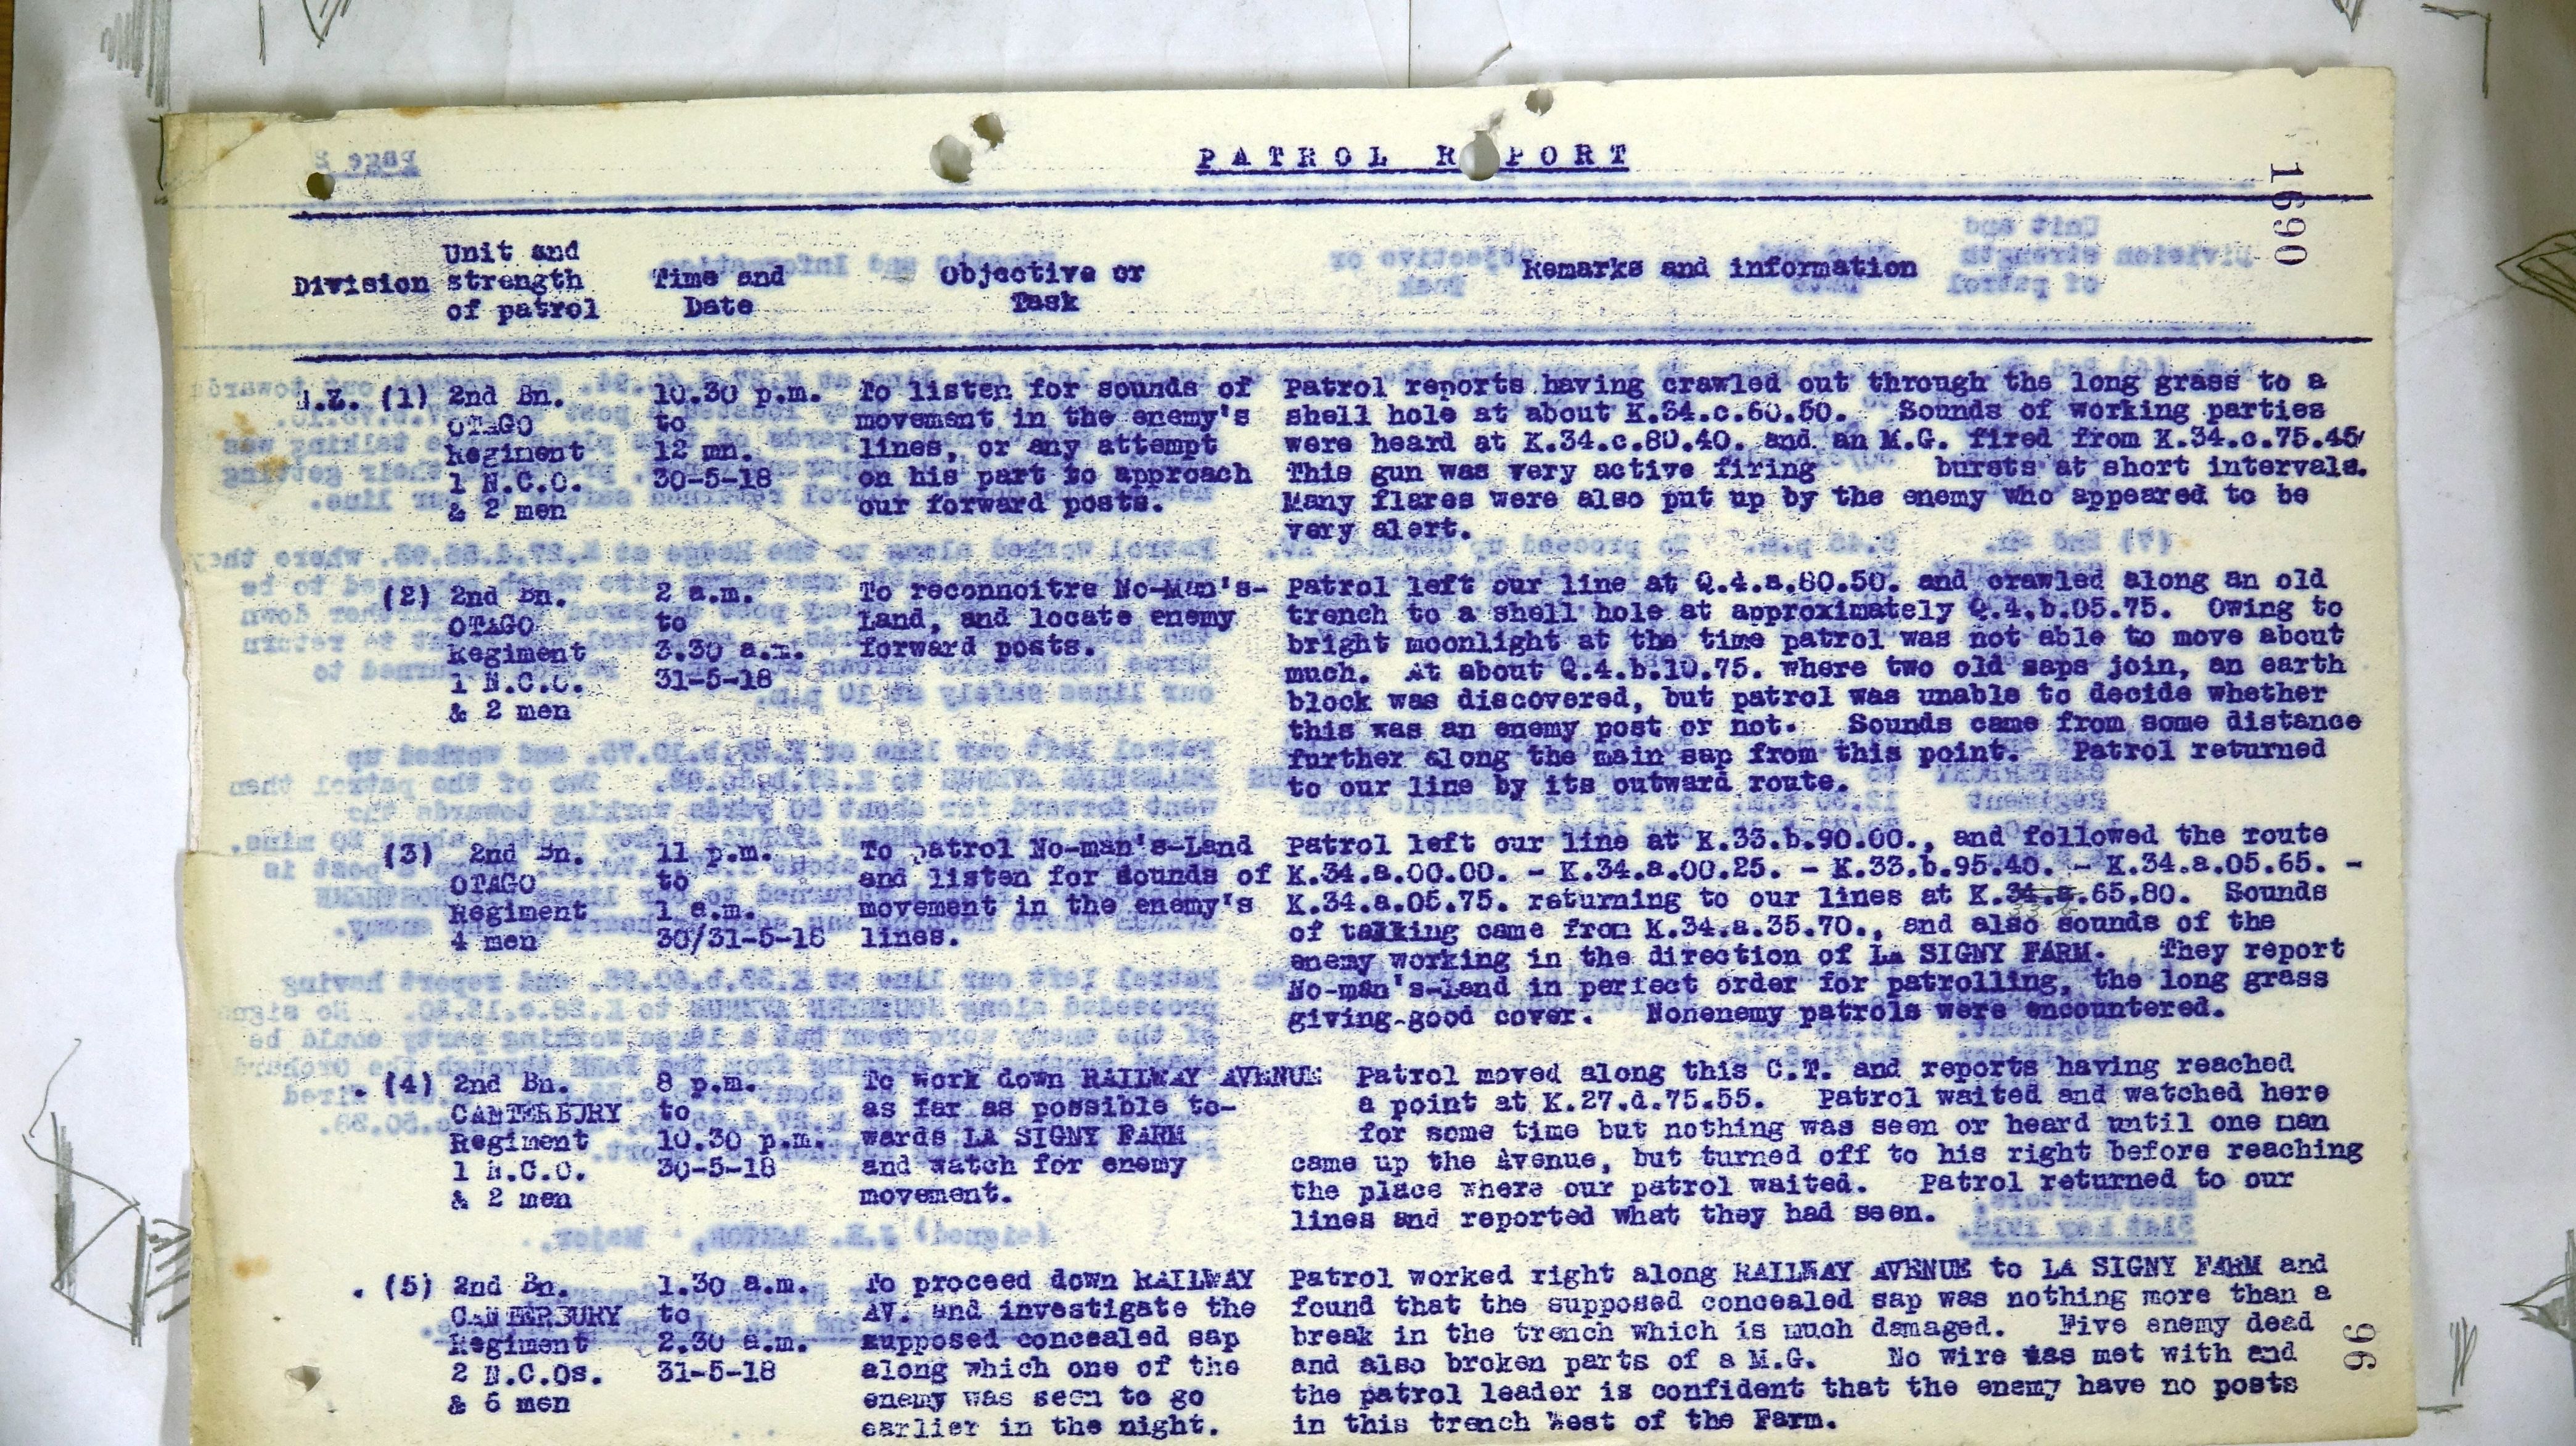 PATROL R PORT
1690
Division
Unit and
strength
of patrol
Time and
Date
Objective or
Task
Remarks and information
.Z. (1)
2nd Bn.
OTAGO
Regiment
1 N.C.O.
& 2 men
10.30 p.m.
to
12 mn.
30-5-18
To listen for sounds of
movement in the enemy's
lines, or any attempt
on his part to approach
our forward posts.
Patrol reports having crawled out through the long grass to a
shell hole at about K.34.c.60.50. Sounds of working parties
were heard at K.34.c.80.40. and an M.G. fired from K.34.c.75.45
This gun was very active firing bursts at short intervals.
Many flares were also put up by the enemy who appeared to be
very alert.
(2)
2nd Bn.
OTAGO
Regiment
1 N.C.O.
& 2 men
2 a.m.
to
3.30 a.m.
31-5-18
To reconnoitre No-Man's-
Land, and locate enemy
forward posts.
Patrol left our line at Q.4.a.80.50. and crawled along an old
trench to a shell hole at approximately Q.4.b.05.75. Owing to
bright moonlight at the time patrol was not able to move about
much. At about Q.4.b.10.75. where two old saps join, an earth
block was discovered, but patrol was unable to decide whether
this was an enemy post or not. Sounds came from some distance
further along the main sap from this point. Patrol returned
to our line by its outward route.
(3)
2nd Bn.
OTAGO
Regiment
4 men
11 p.m.
to
1 a.m.
30/31-5-18
To patrol No-man's-Land
and listen for sounds of
movement in the enemy's
lines.
Patrol left our line at K.33.b.90.00., and followed the route
K.34.a.00.00. - K.34.a.00.25. - K.33.b.95.40. - K.34.a.05.65. -
K.34.a.05.75. returning to our lines at K.34.a.65.80. Sounds
of talking came from K.34.a.35.70., and also sounds of the
enemy working in the direction of La SIGNY FARM. They report
No-man's-Land in perfect order for patrolling, the long grass
giving good cover. Nonenemy patrols were encountered.
. (4)
2nd Bn.
CANTERBURY
Regiment
1 N.C.O.
& 2 men
8 p.m.
to
10.30 p.m.
30-5-18
To work down RAILWAY AVENUE
as far as possible to-
wards LA SIGNY FARM
and watch for enemy
movement.
Patrol moved along this C.T. and reports having reached
a point at K.27.d.75.55. Patrol waited and watched here
for some time but nothing was seen or heard until one man
came up the Avenue, but turned off to his right before reaching
the place where our patrol waited. Patrol returned to our
lines and reported what they had seen.
. (5)
2nd Bn.
CANTERBURY
Regiment
2 N.C.Os.
& 6 men
1.30 a.m.
to
2.30 a.m.
31-5-18
To proceed down RAILWAY
AV. and investigate the
supposed concealed sap
along which one of the
enemy was seen to go
earlier in the night.
Patrol worked right along RAILWAY AVENUE to LA SIGNY FARM and
found that the supposed concealed sap was nothing more than a
break in the trench which is much damaged. Five enemy dead
and also broken parts of a M.G. No wire was met with and
the patrol leader is confident that the enemy have no posts
in this trench West of the Farm.
96